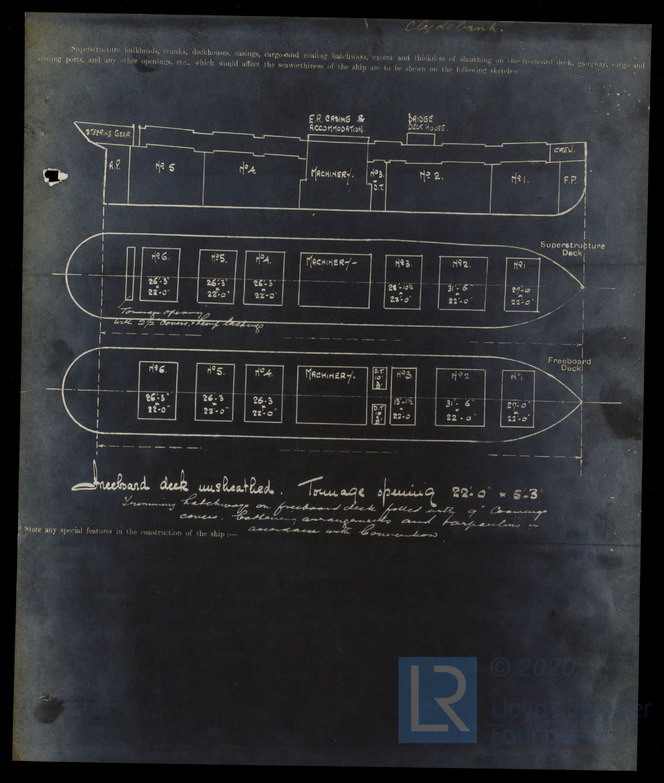 Clydebank.
Superstructure bulkheads, trunks, deckhouses, casings, cargo and coaling hatchways, extent and thickness of sheathing on the freeboard deck, gangway, cargo and
coaling ports, and any other openings, etc., which would affect the seaworthiness of the ship are to be shown on the following sketches
E.R. CASING & BRIDGE
ACCOMMODATION. DECK HOUSE.
STEERING GEAR CREW.
A.P. Nº 5 Nº 4. MACHINERY. Nº3. D.T. Nº 2. Nº 1. F.P.
Superstructure
Deck
Nº6. Nº5. Nº4. MACHINERY Nº3. Nº2. Nº1
26'-3" 26'-3" 26'-3" 31'-6" 27'-0"
22'-0" 22'-0" 22'-0" 22'-0" 22'-0" 22'-0"
Tonnage opening
with
Freeboard
Deck
Nº6. Nº5. Nº4. MACHINERY. D.T. Nº3 Nº2 Nº1
26'-3 26-3 26-3 D.T. 13'-1½ 31'-6" 27'-0"
22'-0" 22-0" 22-0" 22-0" 22-0" 22'-0"
Freeboard deck unsheathed. Tonnage opening 22'-0" × 5'-3
hatchways on freeboard deck fitted with 9" Coamings
covers. Battening arrangements and tarpaulins in
State any special features in the construction of the ship :— accordance with Convention.
LR © 2020
Lloyd's Register
Foundation